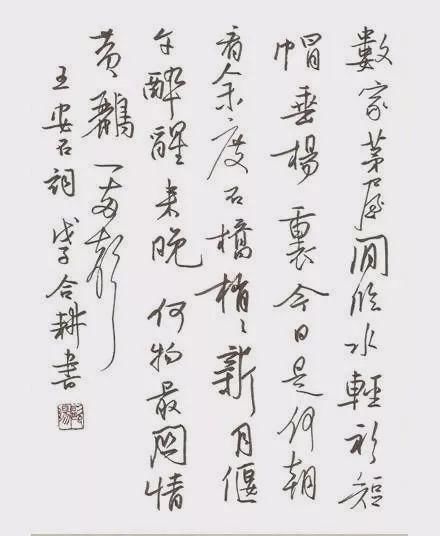 數家茅屋閒临水輕衫短
帽垂楊裏今日是何朝
看余度石橋梢〻新月偃
午醉醒来晚何物最関情
黄鸝一两聲
王安石詞 戊子合耕書